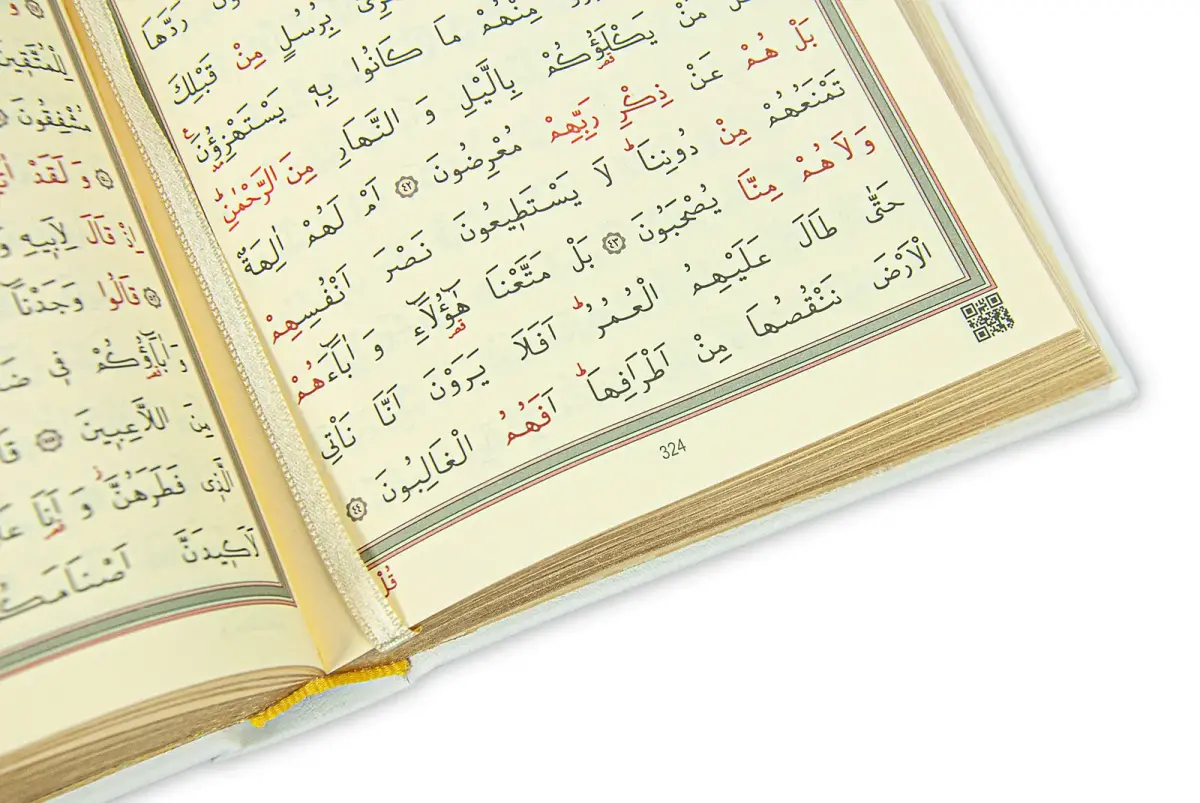 رَدَّهَا
بِرُسُلٍ مِنْ قَبْلِكَ
مِنْهُمْ مَا كَانُوا بِهٖ يَسْتَهْزِؤُنَ
مَنْ يَكْلَؤُكُمْ بِالَّيْلِ وَ النَّهَارِ مِنَ الرَّحْمٰنِ
بَلْ هُمْ عَنْ ذِكْرِ رَبِّهِمْ مُعْرِضُونَ ٤٢ اَمْ لَهُمْ اٰلِهَةٌ
تَمْنَعُهُمْ مِنْ دُونِنَا لَا يَسْتَطٖيعُونَ نَصْرَ اَنْفُسِهِمْ
وَ لَا هُمْ مِنَّا يُصْحَبُونَ ٤٣ بَلْ مَتَّعْنَا هٰٓؤُلَٓاءِ وَ اٰبَٓاءَهُمْ
حَتّٰى طَالَ عَلَيْهِمُ الْعُمُرُ اَفَلَا يَرَوْنَ اَنَّا نَاْتِى
الْاَرْضَ نَنْقُصُهَا مِنْ اَطْرَافِهَا اَفَهُمُ الْغَالِبُونَ ٤٤
324
قُلْ
لِلْمُتَّقٖينَ
مُشْفِقُونَ
وَ لَقَدْ
اِذْ قَالَ لِاَبٖيهِ
قَالُوا وَجَدْنَٓا
وَ اٰبَٓاؤُكُمْ فٖى
مِنَ اللَّاعِبٖينَ
الَّذٖى فَطَرَهُنَّ وَ اَنَا
لَاَكٖيدَنَّ